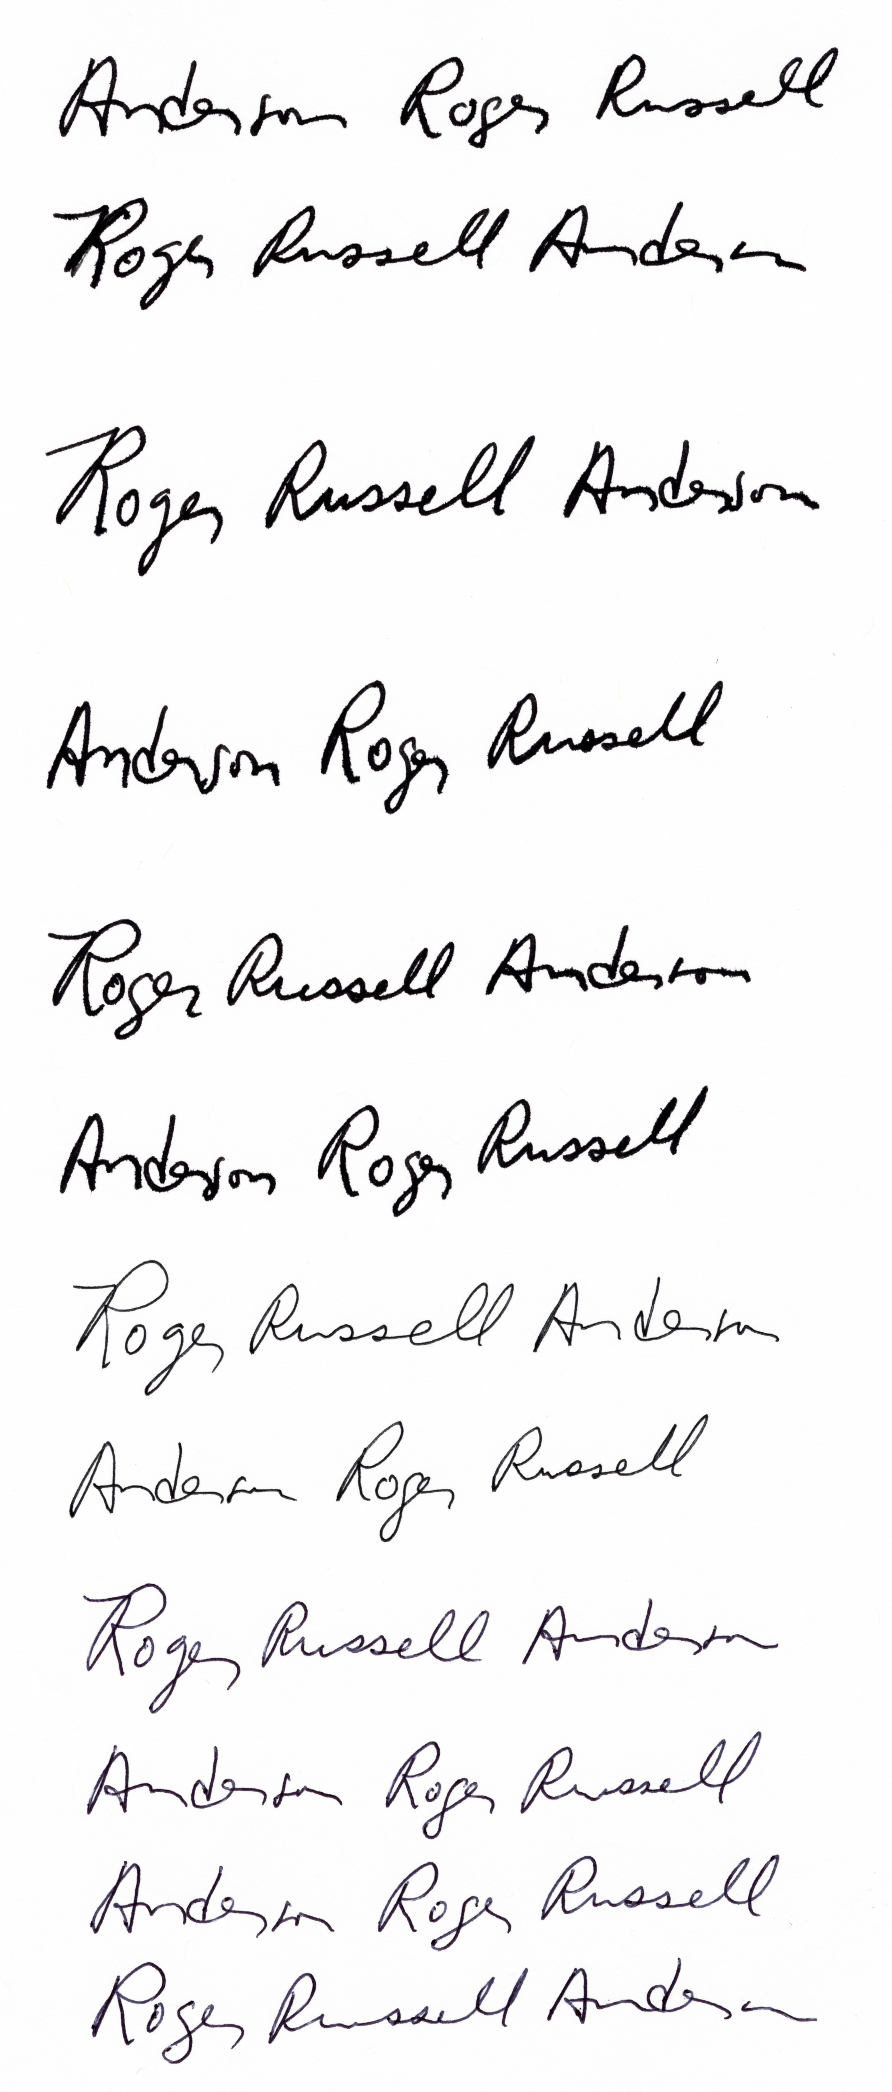 Anderson Roger Russell
Roger Russell Anderson
Roger Russell Anderson
Anderson Roger Russell
Roger Russell Anderson
Anderson Roger Russell
Roger Russell Anderson
Anderson Roger Russell
Roger Russell Anderson
Anderson Roger Russell
Anderson Roger Russell
Roger Russell Anderson